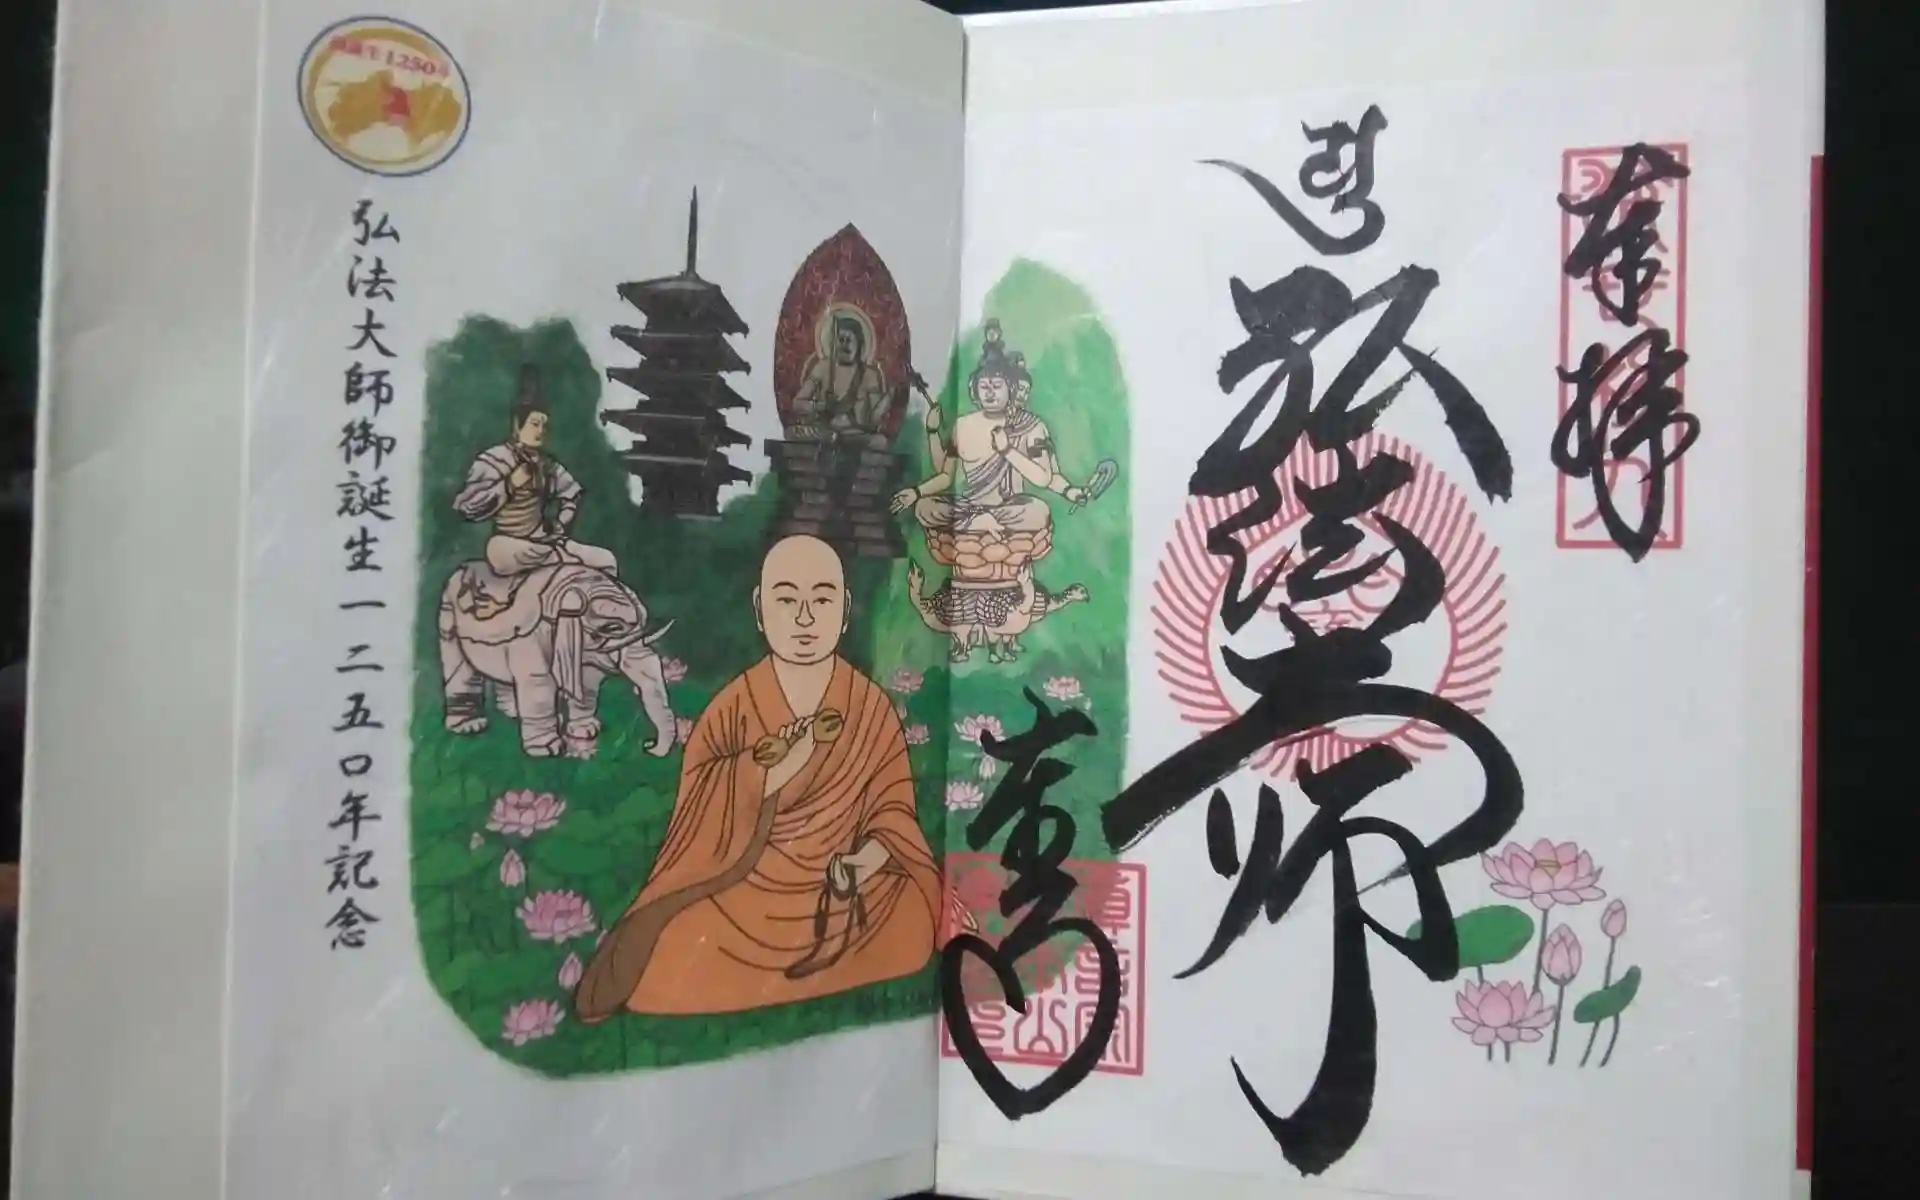 奉拝
弘法大師
東寺
弘法大師御誕生一二五〇年記念
御誕生1250年